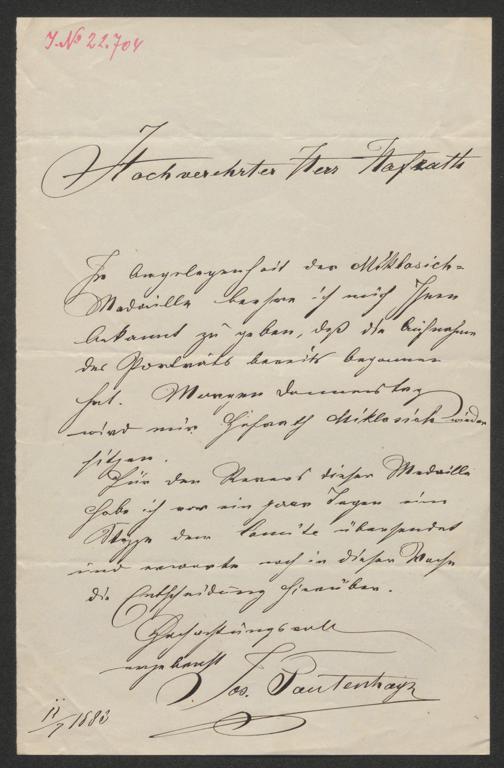 I.No 22.704
Hochverehrter Herr Hofrath
In Angelegenheit der Miklosich-
Medaille beehre ich mich Ihnen
bekannt zu geben, daß die Aufnahme
des Porträts bereits begonnen
hat. Morgen Donnerstag
wird mir Hofrath Miklosich wieder
sitzen.
Für den Revers dieser Medaille
habe ich vor ein paar Tagen eine
Skizze dem Comité übersendet
und erwarte noch in dieser Woche
die Entscheidung hierüber.
Hochachtungsvoll
ergebenst
Jos. Tautenhayn
11/7 1883